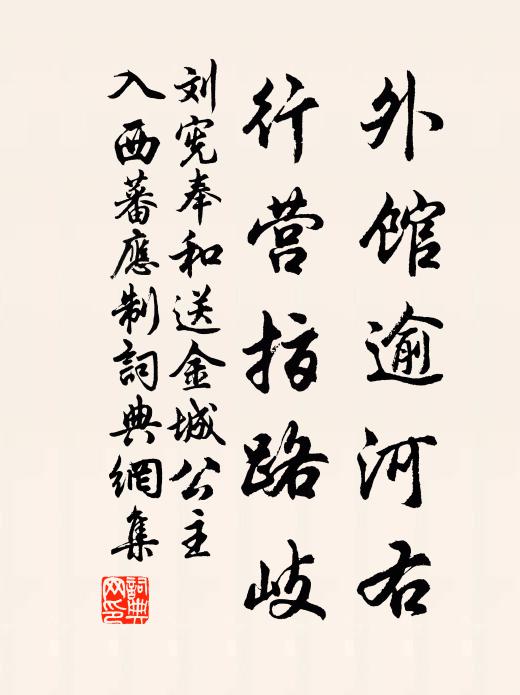 外馆逾河右
行营指路岐
刘宪奉和送金城公主
入西蕃應制詞典網集
詞典网印